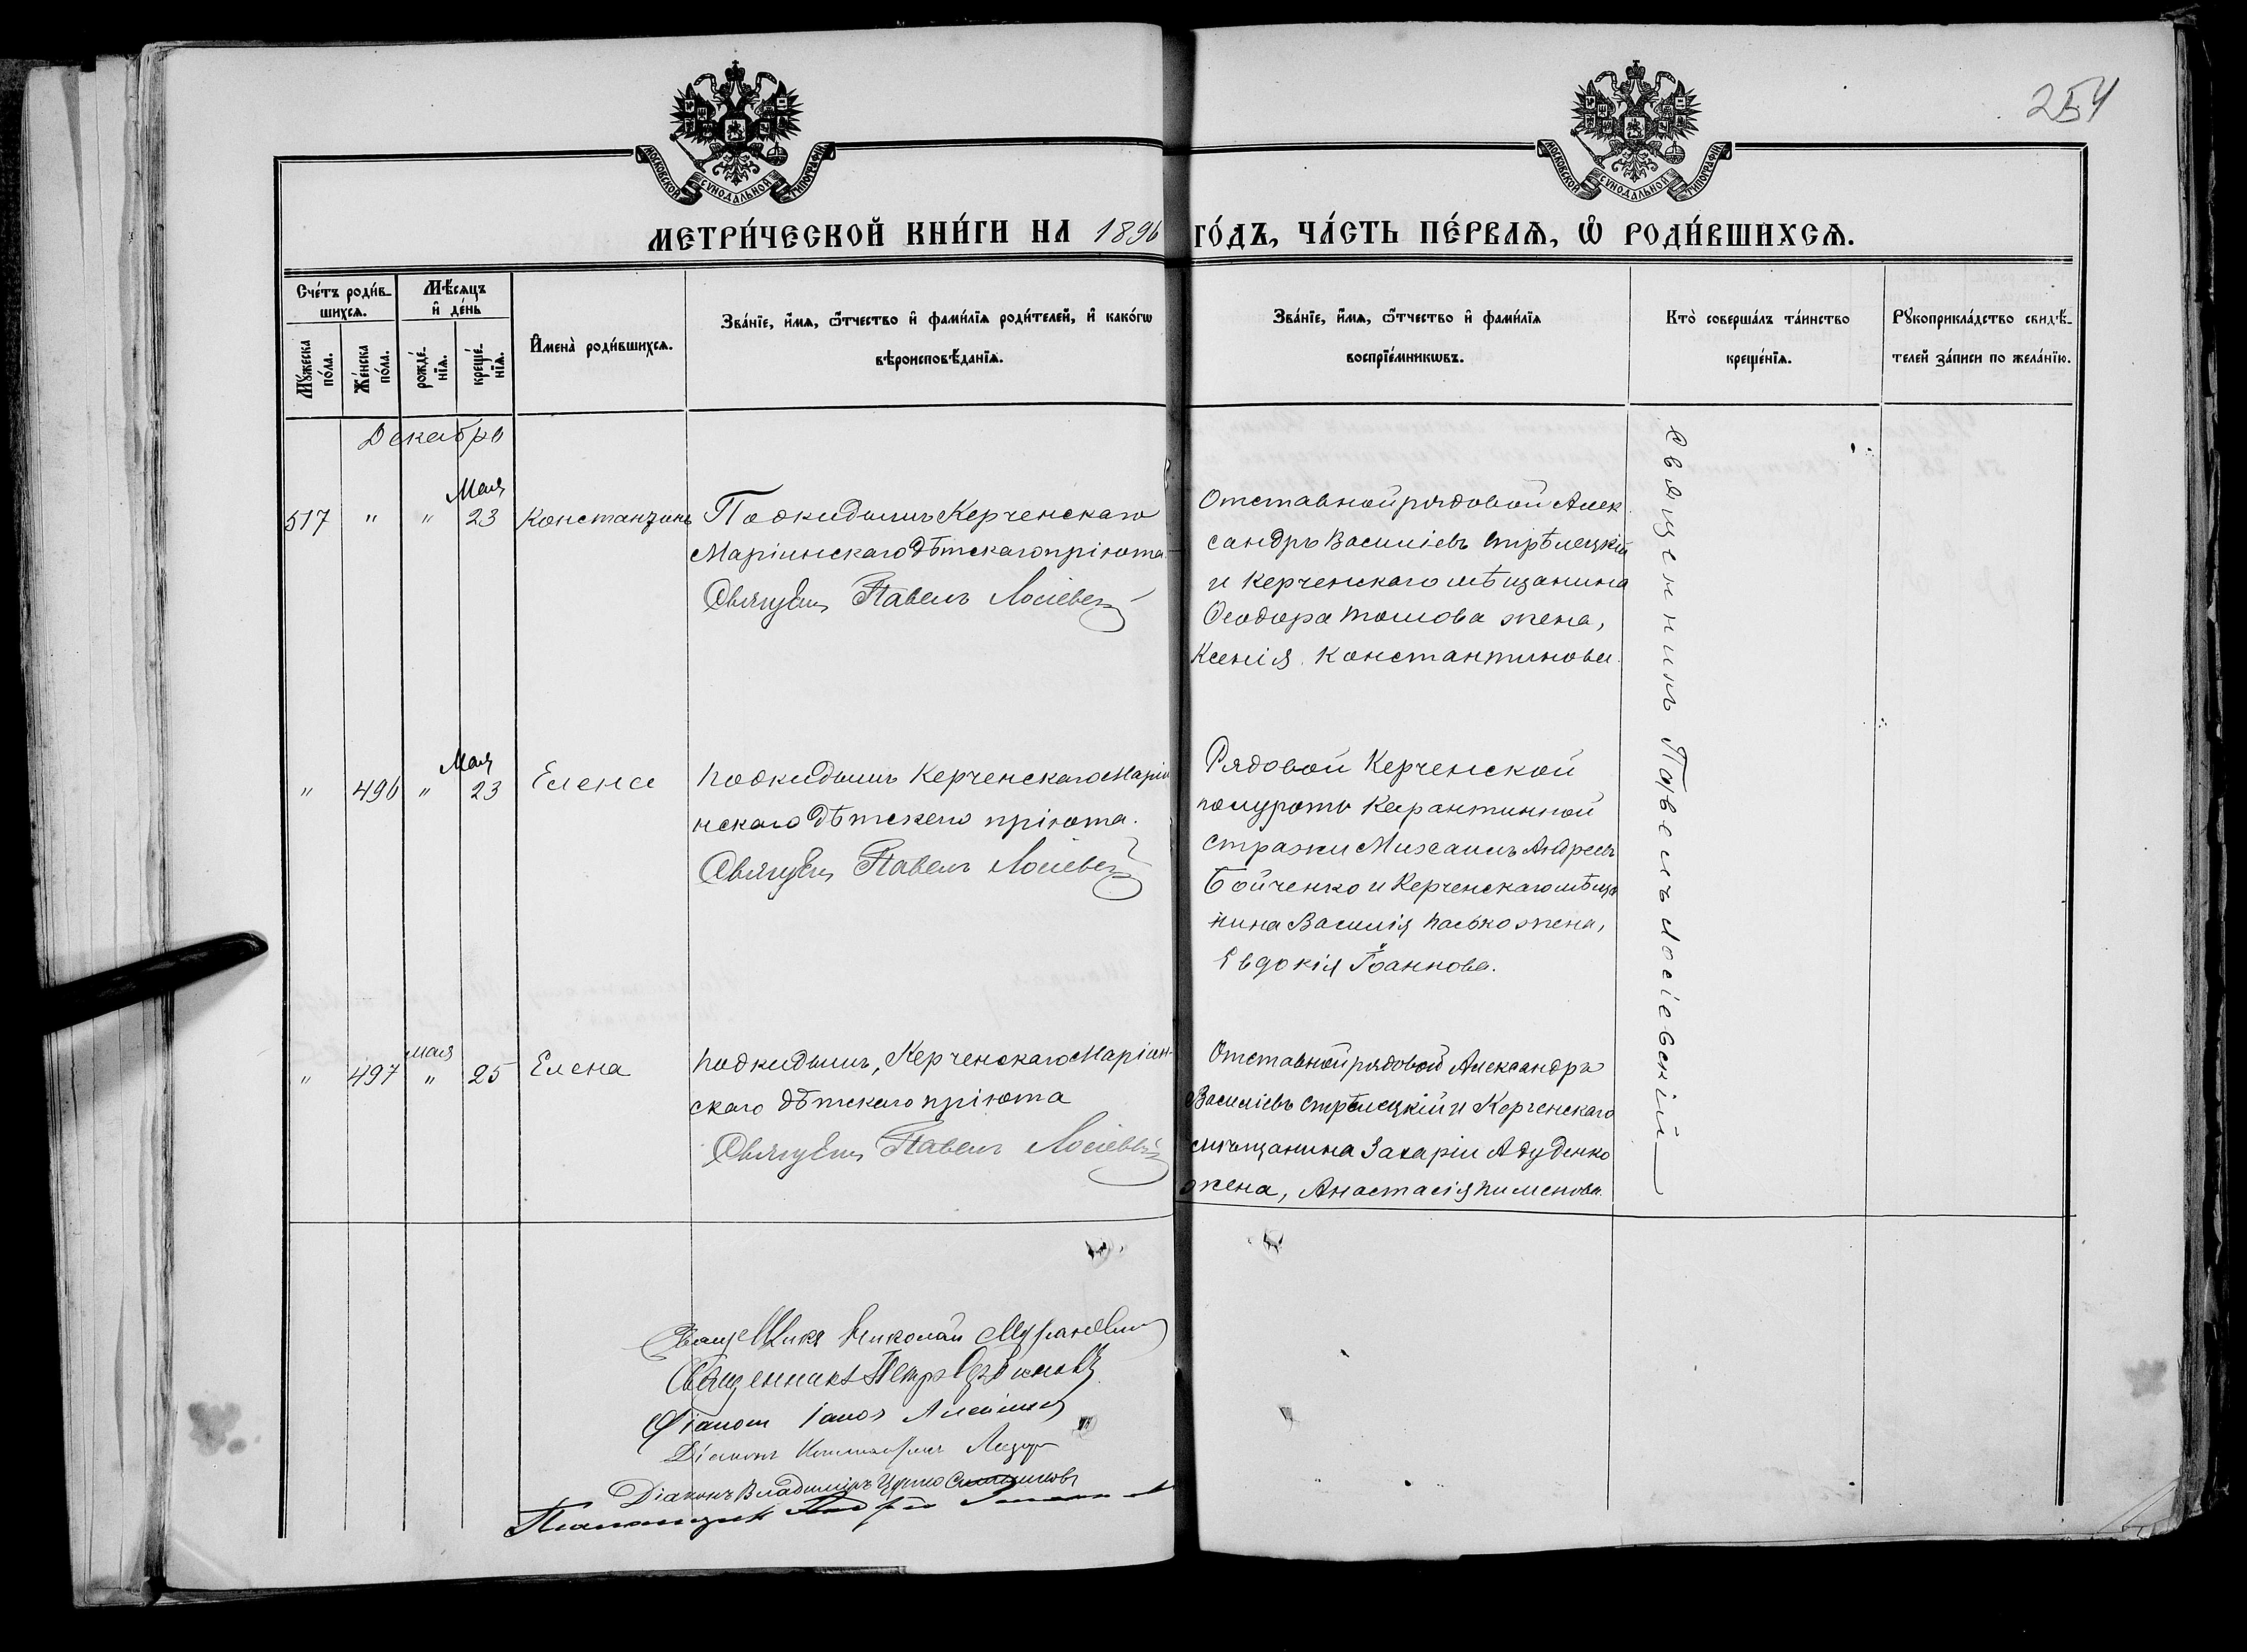 254
МОСКОВСКОЙ СѴНОДАЛЬНОЙ ТИПОГРАФІИ
МОСКОВСКОЙ СѴНОДАЛЬНОЙ ТИПОГРАФІИ
МЕТРИ́ЧЕСКОЙ КНИ́ГИ НА 1896 ГО́ДЪ, ЧА́СТЬ ПЕ́РВАѦ, Ѡ РОДИ́ВШИХСѦ.
Сче́тъ роди́в-
шихсѧ.
Мꙋ́жеска
по́ла.
Же́нска
по́ла.
Мѣ́сѧцъ
и҆ де́нь
рожде́-
нїѧ.
креще́-
нїѧ.
И҆мена̀ роди́вшихсѧ.
Зва́нїе, и҆́мѧ, ѻ҆́тчество и҆ фами́лїѧ роди́телей, и҆ како́гѡ
вѣроисповѣ́данїѧ.
Зва́нїе, и҆́мѧ, ѻ҆́тчество и҆ фами́лїѧ
воспрїе́мникѡвъ.
Кто̀ соверша́лъ та́инство
креще́нїѧ.
Рꙋкоприкла́дство свидѣ́-
телей за́писи по жела́нїю.
Декабрь
517 " " Мая 23 Константинъ
Подкидышъ Керченскаго
Маріинскаго дѣтскаго пріюта.
Священ Павелъ Лосіевскій
Отставной рядовой Алек
сандръ Василіевъ Стрѣлецкій
и Керченскаго мѣщанина
Ѳеодора Томова жена,
Ксенія Константинова.
" 496 " Мая 23 Елена
Подкидышъ Керченскаго Маріи
нскаго дѣтскаго пріюта.
Священ Павелъ Лосіевскій
Рядовой Керченской
полуроты Карантинной
стражи Михаилъ Андреевъ
Бойченко и Керченскаго мѣща
нина Василія Пасько жена,
Евдокія Іоаннова.
" 497 мая " 25 Елена
Подкидышъ, Керченскаго Маріин-
скаго дѣтскаго пріюта
Священ Павелъ Лосіевскій
Отставной рядовой Александръ
Василіевъ Стрѣлецкій и Керченскаго
мѣщанина Захаріи Адуденко
жена, Анастасія Пименова.
Священникъ Павелъ Лосіевскій
Священникъ Николай
Священникъ Петръ
Діаконъ
Діаконъ
Діаконъ Владиміръ
Псаломщикъ